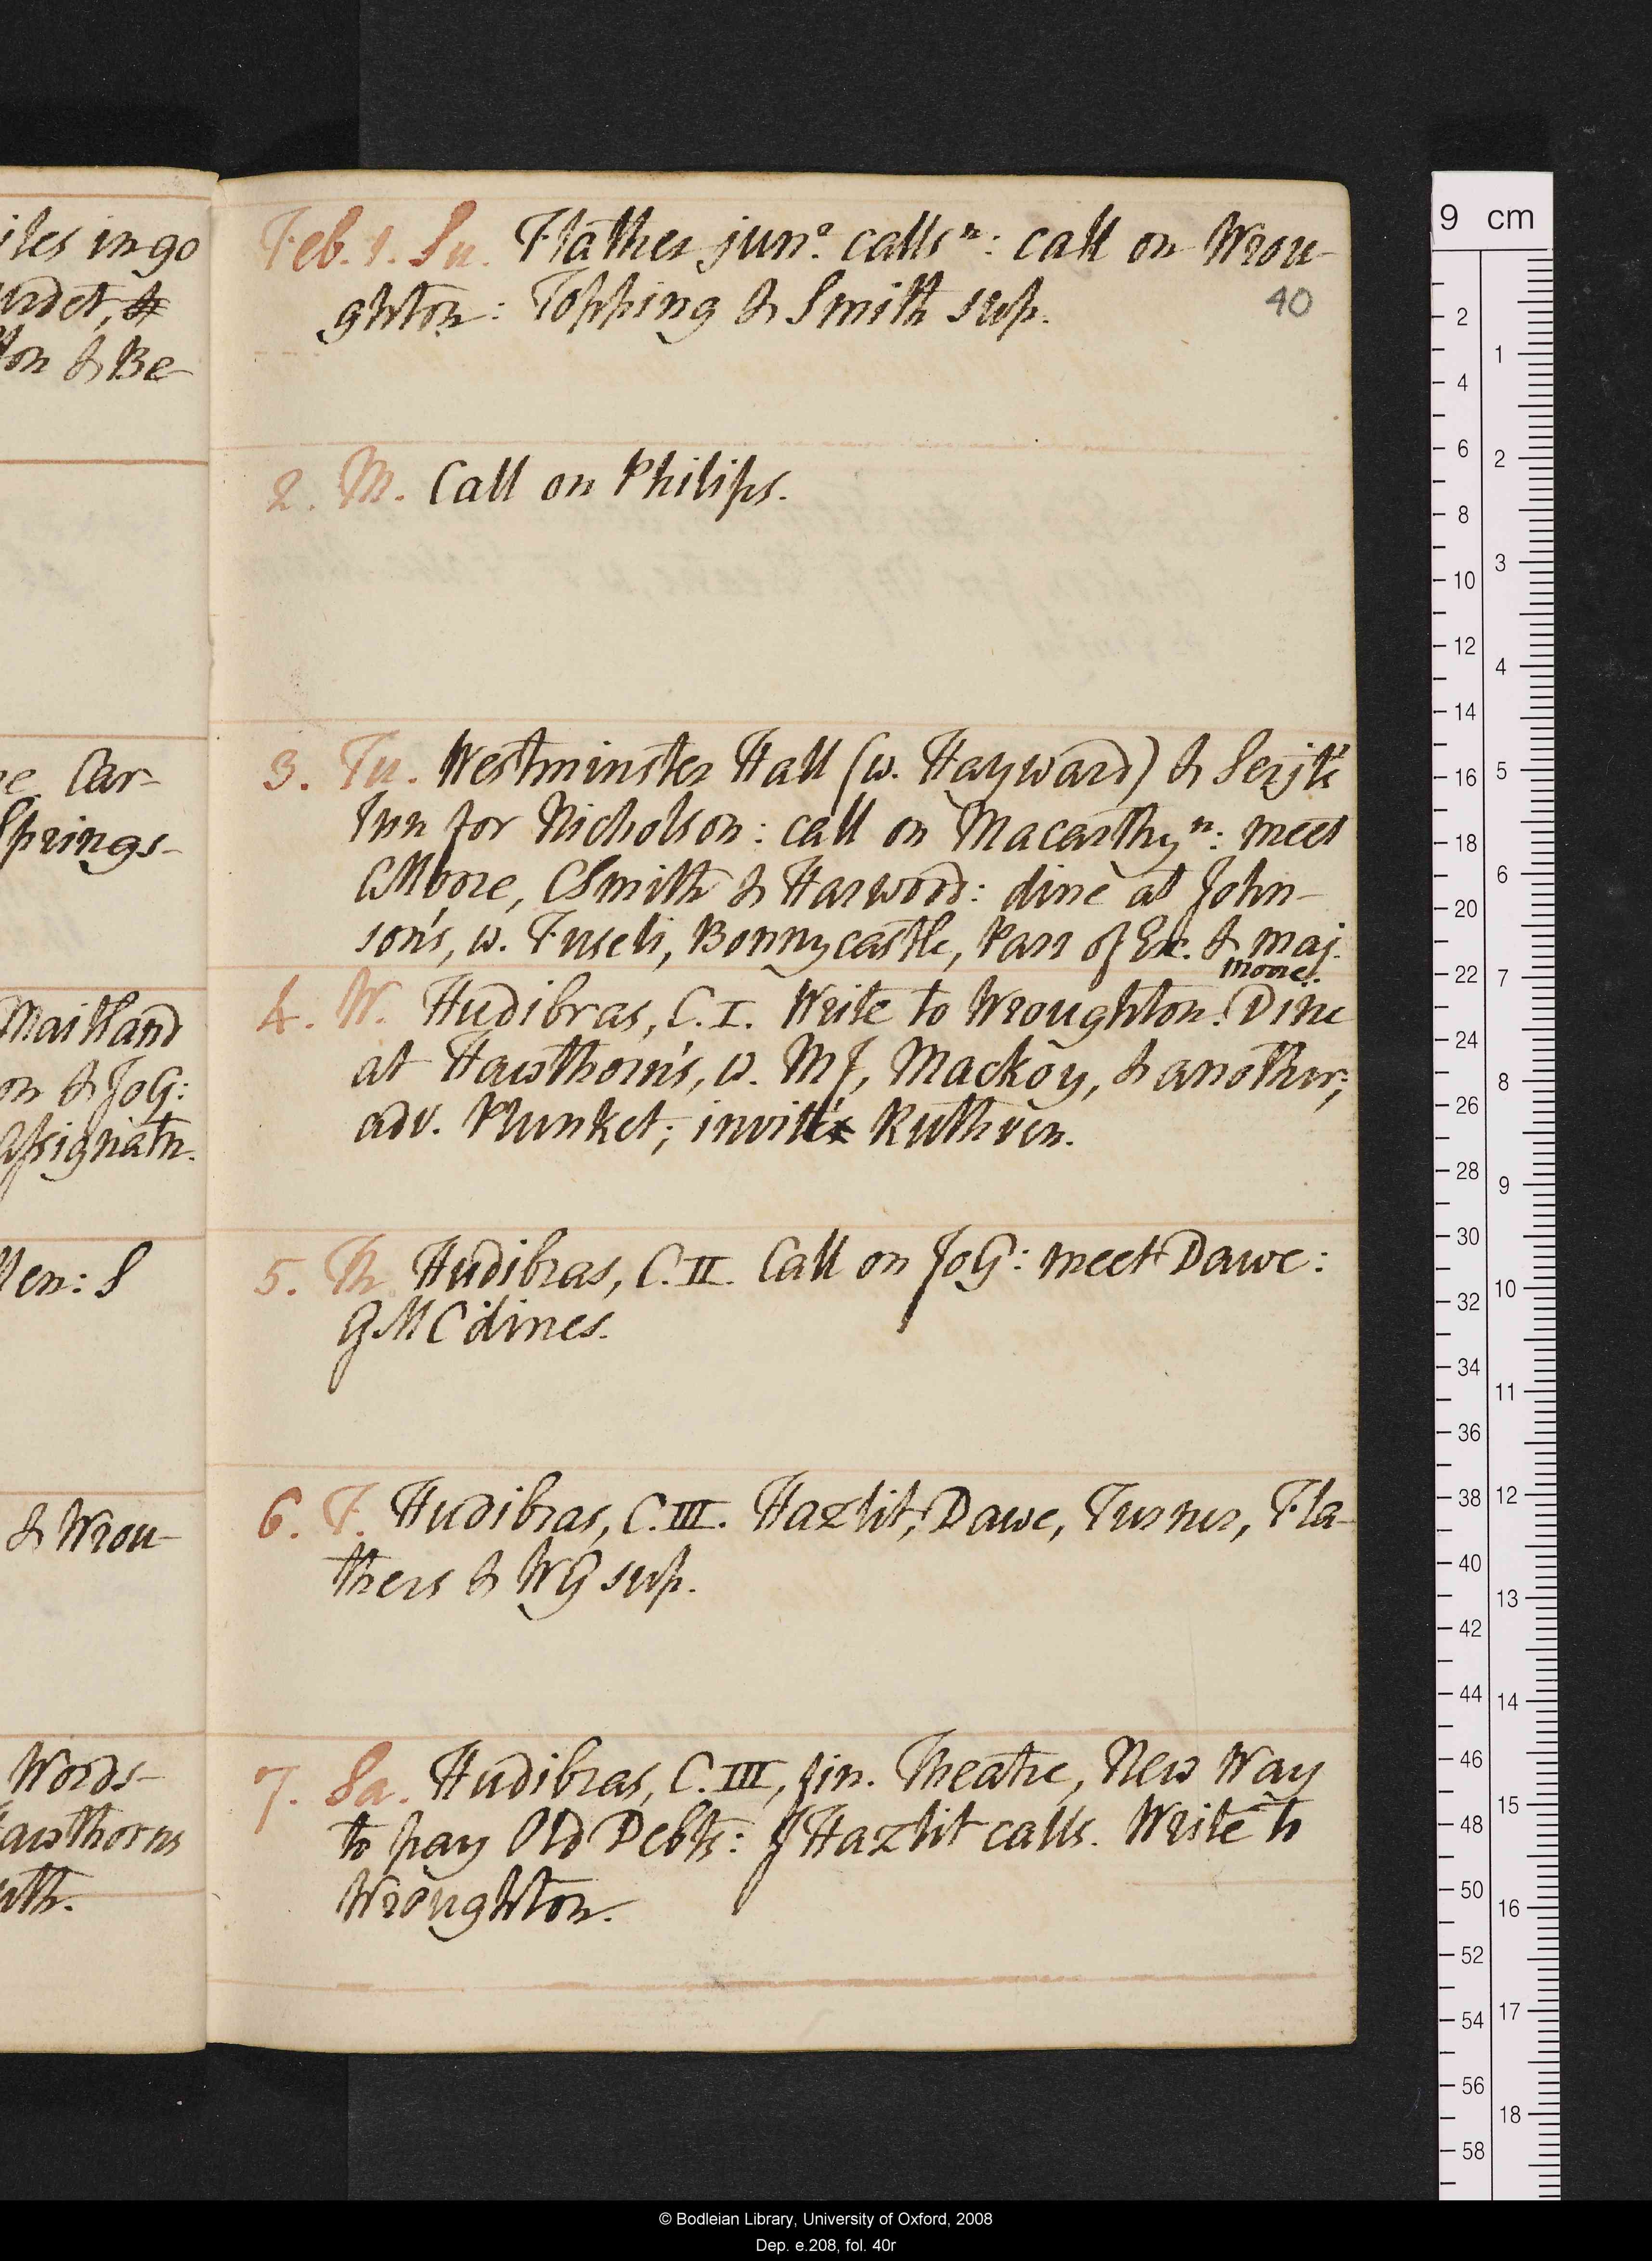 iles in 90
urdet, &
on & Be-
e Car-
Springs-
Maitland
on & JoG:
Assignatn.
en: S
& Wrou-
Words-
awthorns
uth.
Feb. 1. Su. Flather junr. calls n: call on Wrou-
ghton: Topping & Smith sup.
40
2. M. Call on Philips.
3. Tu. Westminster Hall (w. Hayward) & Serjts
Inn for Nicholson: call on Macarthy n: meet
CMoore, CSmith & Harwood: dine at John-
son's, w. Fuseli, Bonnycastle, Parr of Ex. & maj.
Moore.
4. W. Hudibras, C. I. Write to Wroughton. Dine
at Hawthorn's, w. MJ, Mackoy, & another;
adv. Plunket; invité Ruthven.
5. Th. Hudibras, C. II. Call on JoG: meet Dawe:
GMC dines.
6. F. Hudibras, C. III. Hazlit, Dawe, Turner, Fla-
thers & WG sup.
7. Sa. Hudibras, C. III, fin. Theatre, New Way
to pay Old Debts: J Hazlit calls. Write to
Wroughton.
9 cm
2
4
6
8
10
12
14
16
18
20
22
24
26
28
30
32
34
36
38
40
42
44
46
48
50
52
54
56
58
1
2
3
4
5
6
7
8
9
10
11
12
13
14
15
16
17
18
© Bodleian Library, University of Oxford, 2008
Dep. e.208, fol. 40r